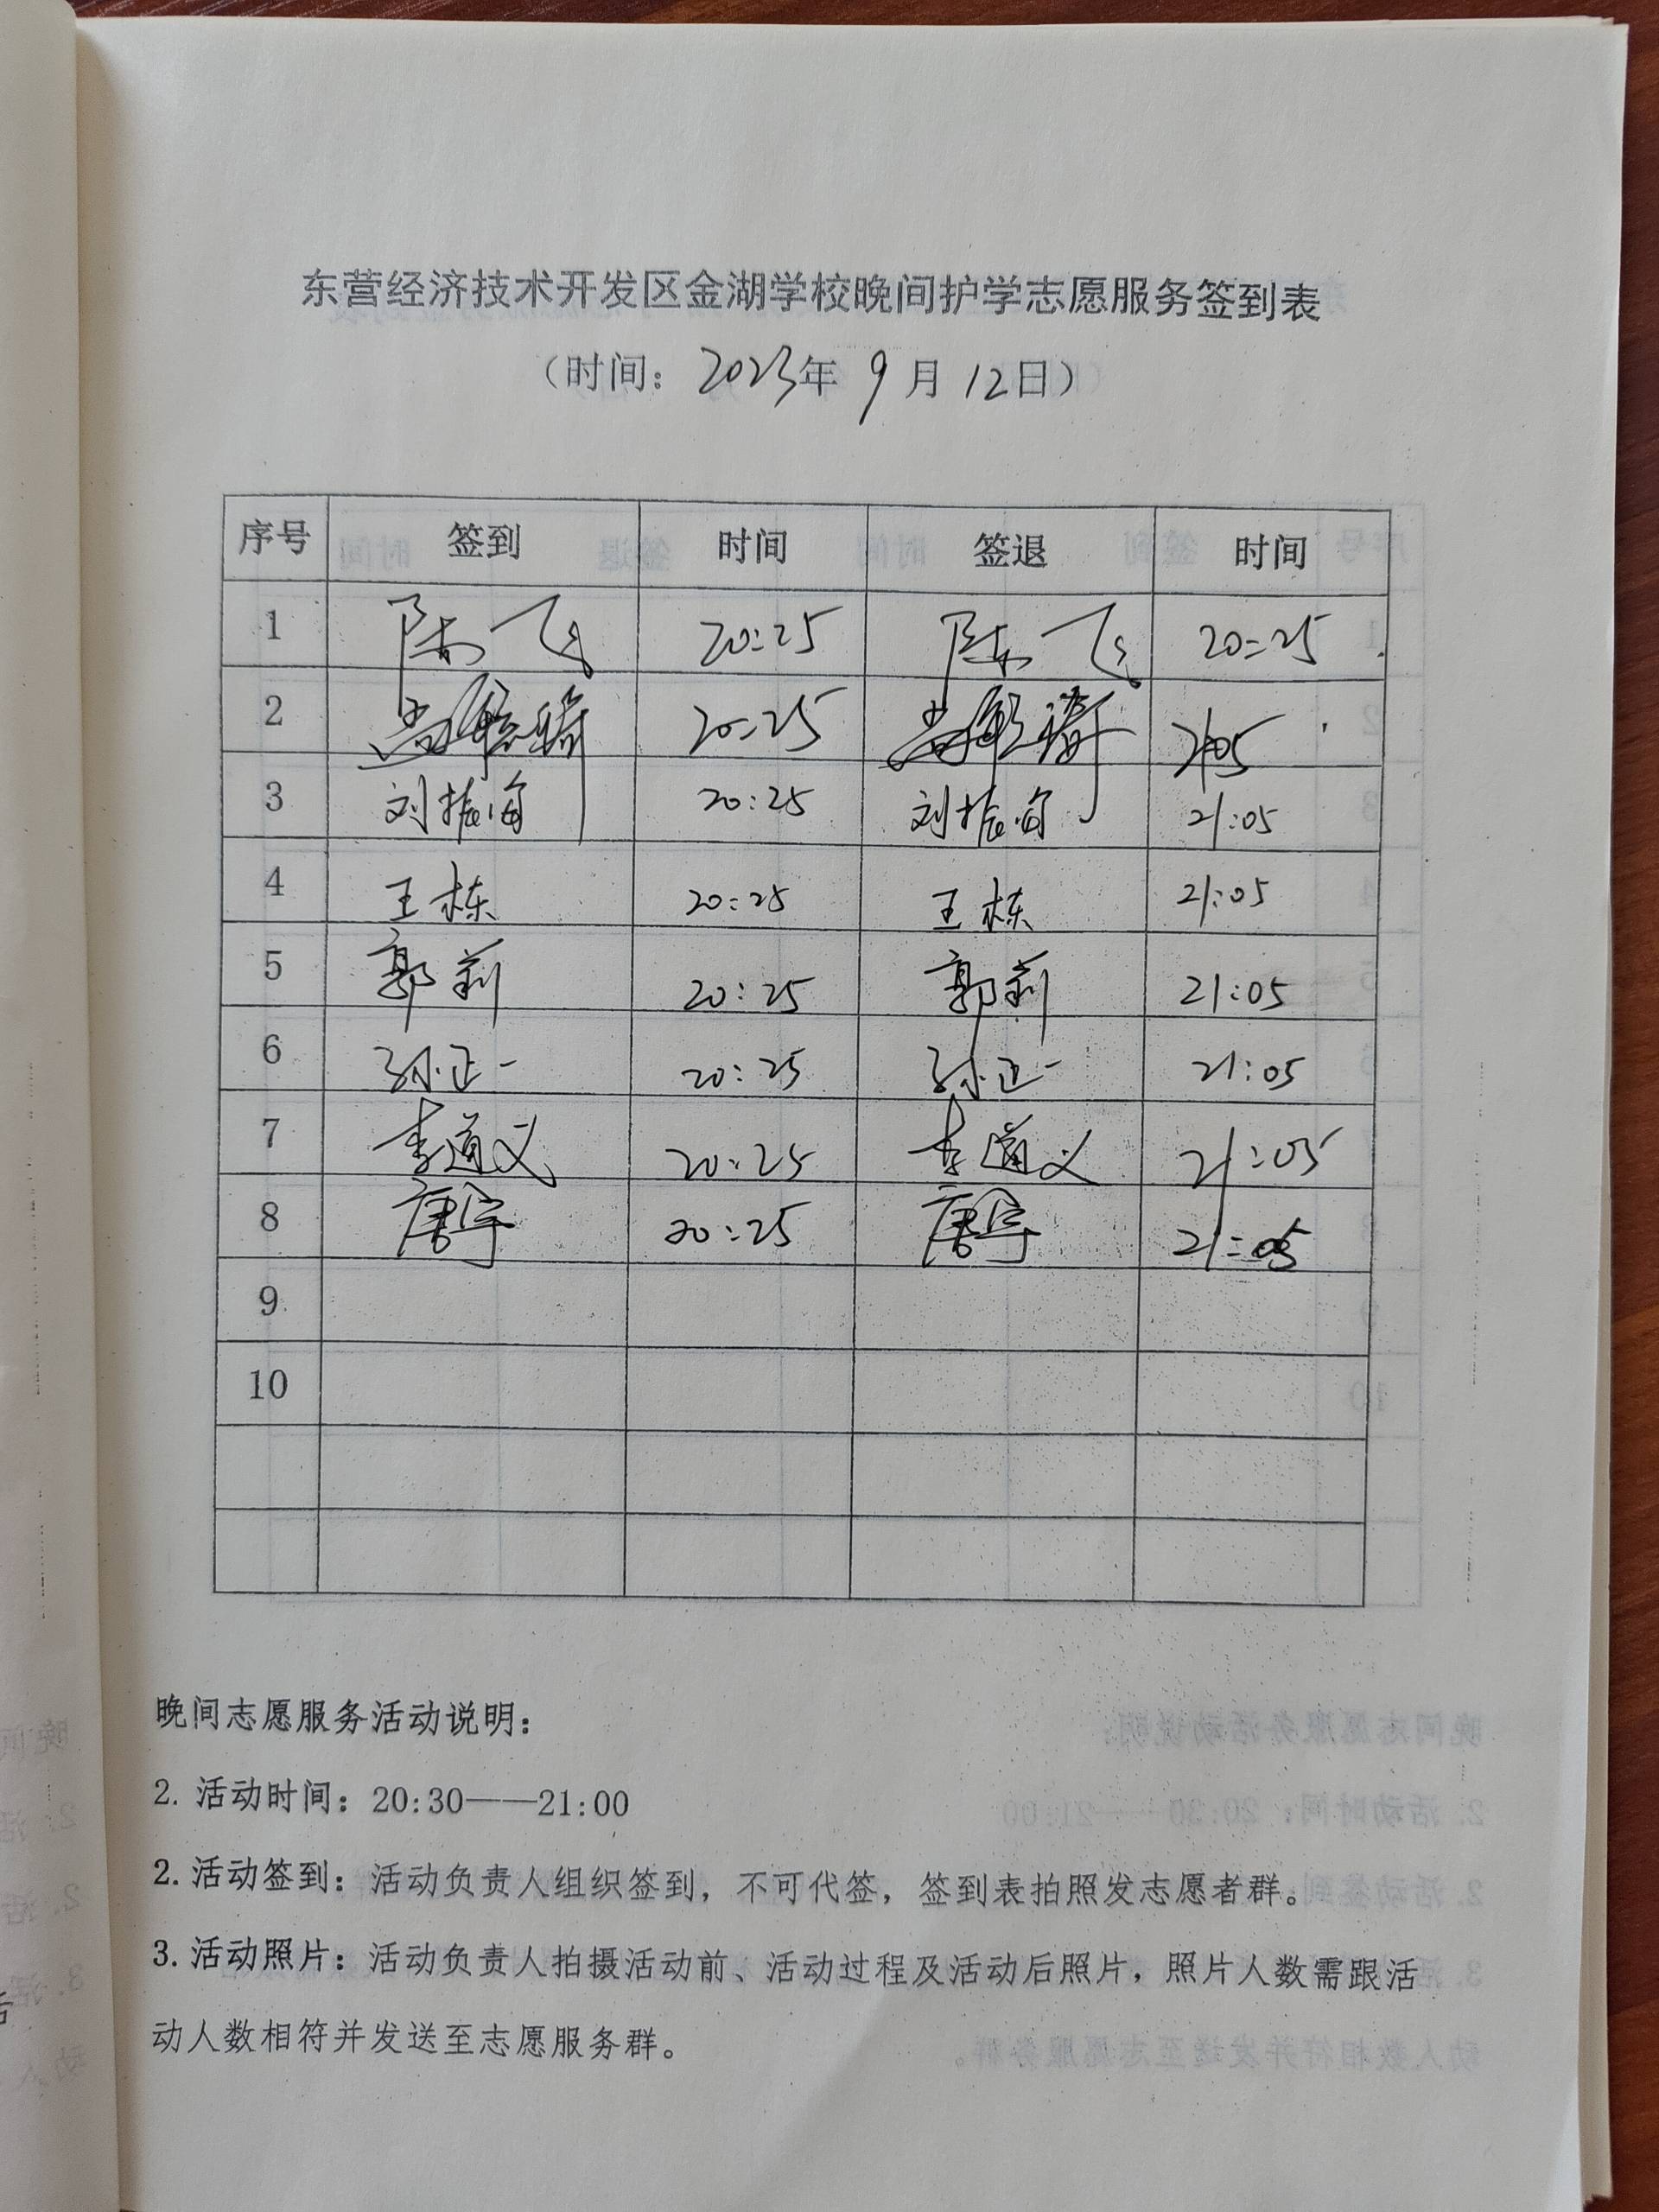 东营经济技术开发区金湖学校晚间护学志愿服务签到表
（时间：2023年 9 月 12日）
序号 签到 时间 签退 时间
1 陈飞 20:25 陈飞 20:25
2 20:25 21:05
3 刘振海 20:25 刘振海 21:05
4 王栋 20:25 王栋 21:05
5 郭莉 20:25 郭莉 21:05
6 孙正一 20:25 孙正一 21:05
7 李道义 20:25 李道义 21:05
8 唐宇 20:25 唐宇 21:05
9
10
晚间志愿服务活动说明：
2. 活动时间：20:30——21:00
2. 活动签到：活动负责人组织签到，不可代签，签到表拍照发志愿者群。
3. 活动照片：活动负责人拍摄活动前、活动过程及活动后照片，照片人数需跟活
动人数相符并发送至志愿服务群。